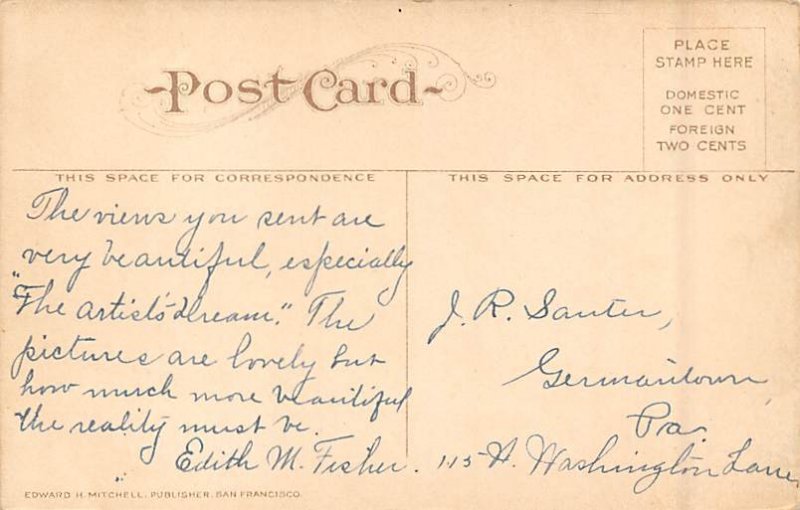 Post Card
PLACE
STAMP HERE
DOMESTIC
ONE CENT
FOREIGN
TWO CENTS
THIS SPACE FOR CORRESPONDENCE
THIS SPACE FOR ADDRESS ONLY
The views you sent are
very beautiful, especially
"The artist's dream." The
pictures are lovely but
how much more beautiful
the reality must be.
Edith M. Fisher.
J. R. Santer,
Germantown,
Pa.
115 Washington Lane,
EDWARD H. MITCHELL, PUBLISHER, SAN FRANCISCO.